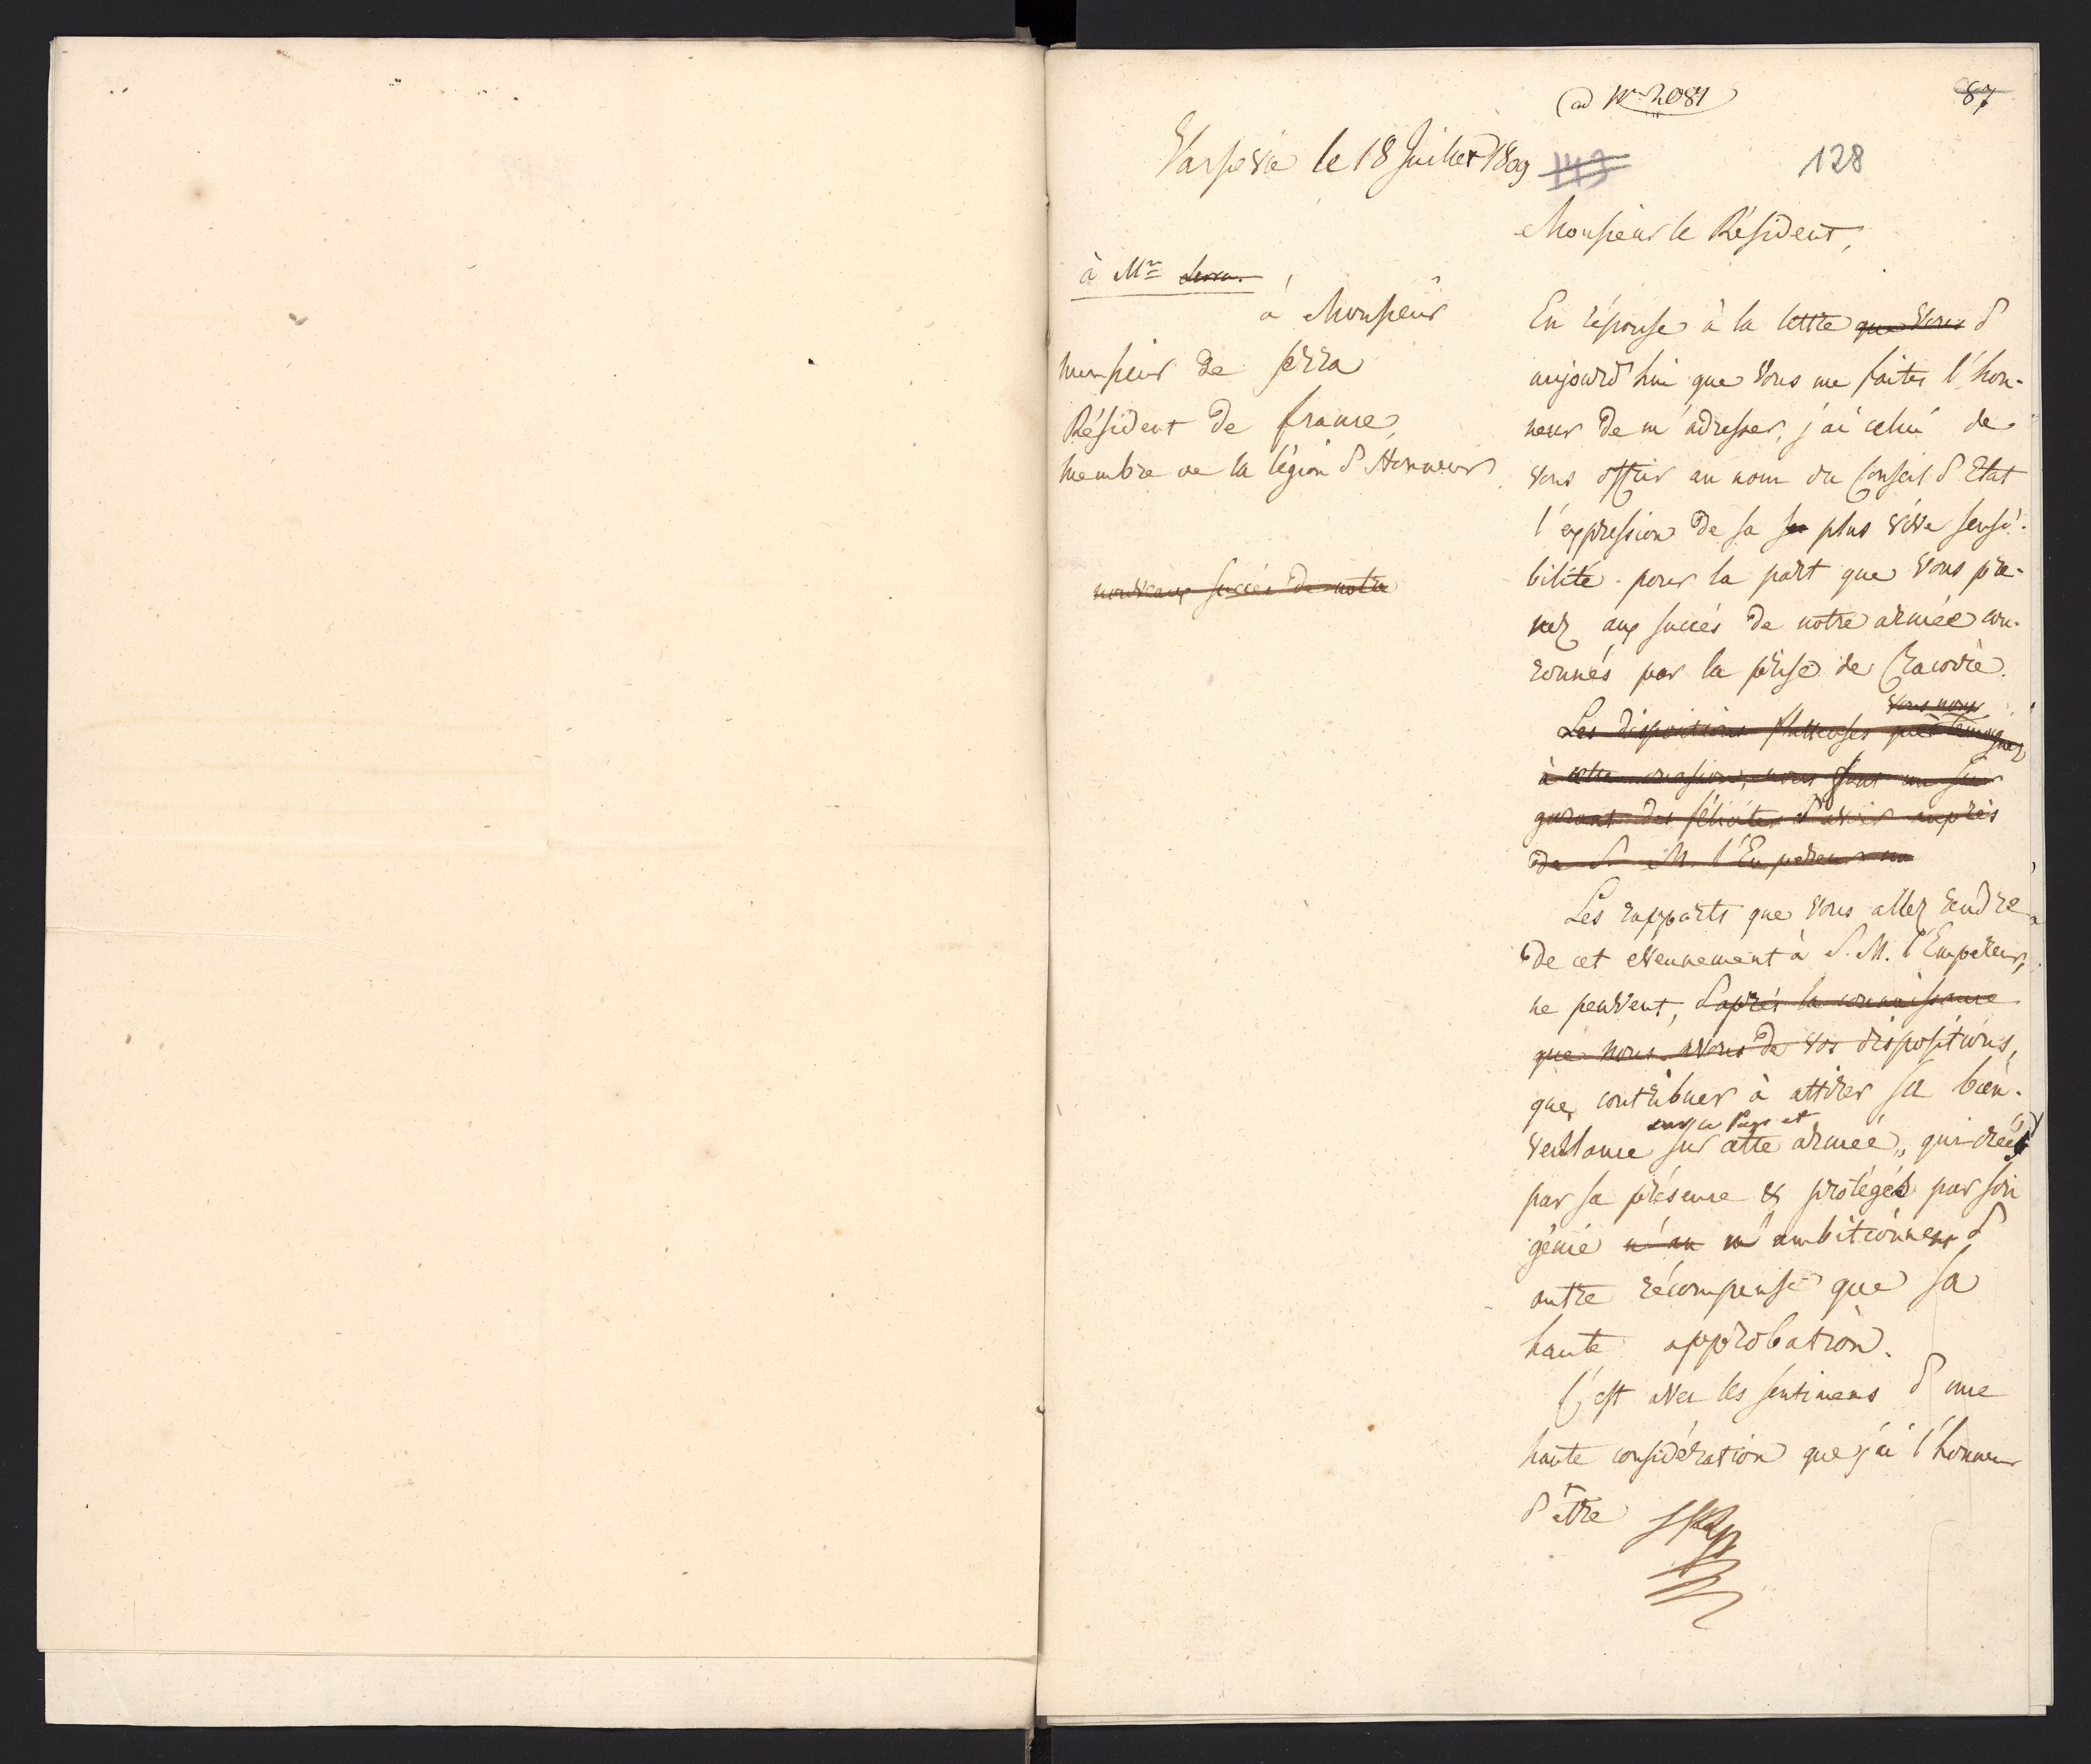 ad Nr 2081
87
Varsovie le 18 Juillet 1809
143
128
Monsieur le Résident,
à Mr Serra.
à Monsieur
Monsieur de Serra
Résident de france,
Membre de la légion d'Honneur
nouveaux succès de notre
En réponse à la lettre que vous d'
aujourd'hui que vous me faites l'hon-
neur de m'adresser, j'ai celui de
vous offrir au nom du Conseil d'Etat
l'expression de sa sa plus vive sensi-
bilité pour la part que vous pre-
nez aux succès de notre armée cou-
ronnés par la prise de Cracovie.
vous nous
Les dispositions flatteuses que témoignez
à cette occasion, nous sont un sur
garant des félicités d'avoir auprès
de S. M. l'Empereur un
Les rapports que vous allez rendre
de cet evennement à S. M. l'Empereur,
ne peuvent, d'après la connaissance
que nous avons de vos dispositions,
que contribuer à attirer sa bien-
sur ce Pays et
veillance sur cette armée, qui créés
par sa présence & protégés par son
génie n'an n'ambitionnent d'
autre récompense que sa
haute approbation.
C'est avec les sentimens d'une
haute considération que j'ai l'honneur
d'être